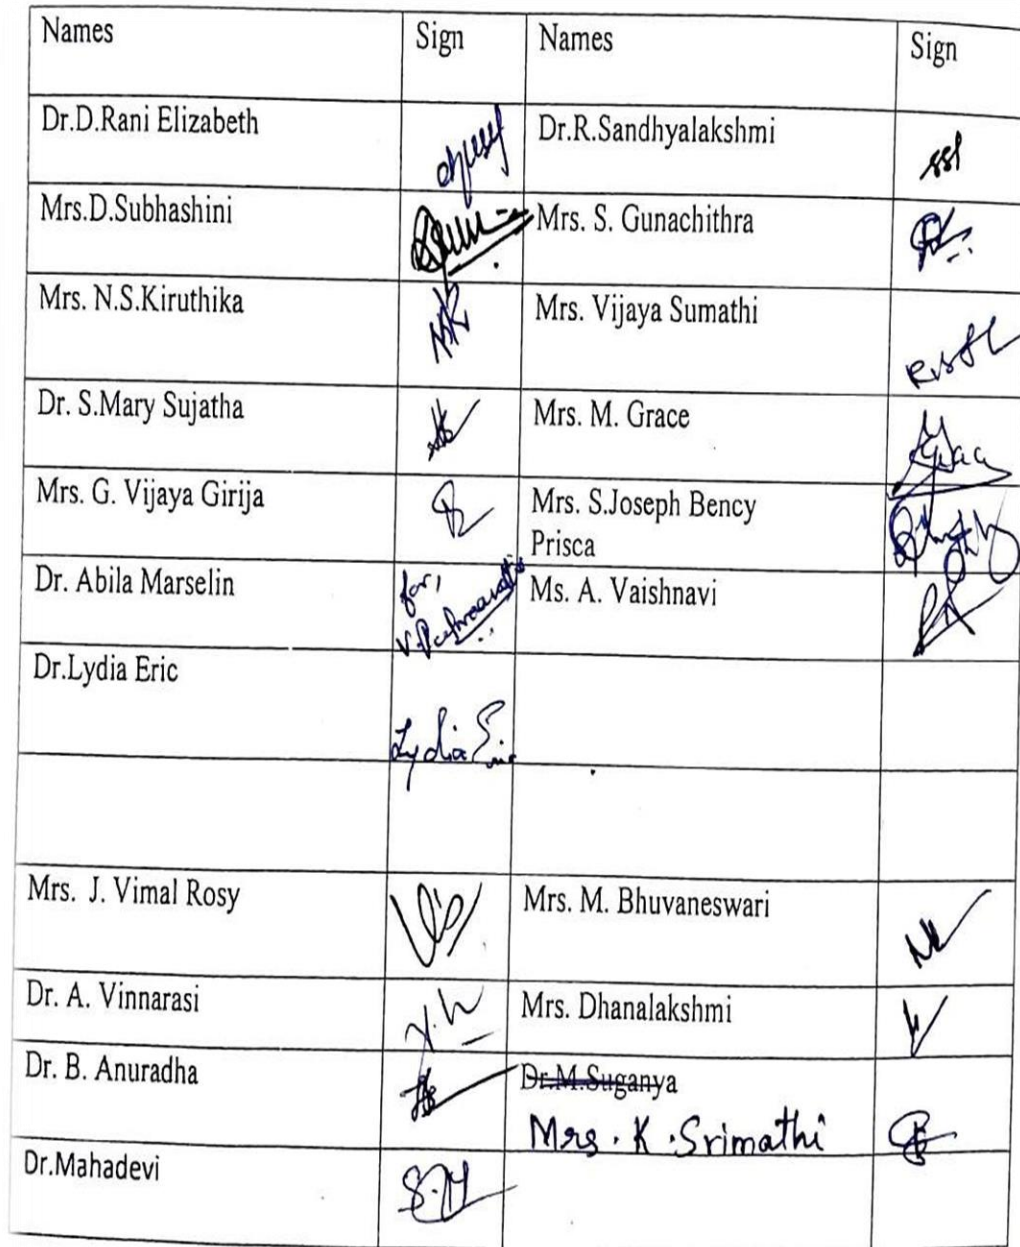 Names Sign Names Sign
Dr.D.Rani Elizabeth Dr.R.Sandhyalakshmi ssl
Mrs.D.Subhashini Mrs. S. Gunachithra
Mrs. N.S.Kiruthika Mrs. Vijaya Sumathi
Dr. S.Mary Sujatha Mrs. M. Grace
Mrs. G. Vijaya Girija Mrs. S.Joseph Bency
Prisca
Dr. Abila Marselin for, Ms. A. Vaishnavi
Dr.Lydia Eric
Lydia Eric
Mrs. J. Vimal Rosy Mrs. M. Bhuvaneswari
Dr. A. Vinnarasi Mrs. Dhanalakshmi
Dr. B. Anuradha Dr.M.Suganya
Mrs. K. Srimathi
Dr.Mahadevi